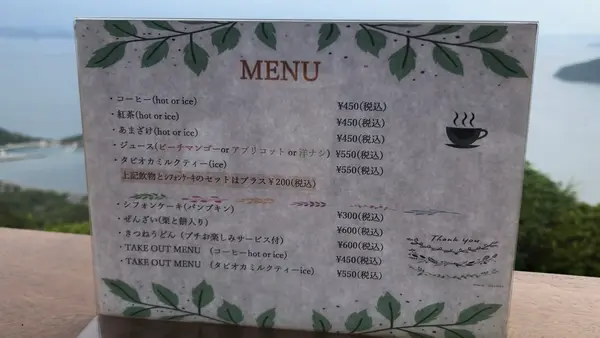 MENU
・コーヒー(hot or ice) ¥450(税込)
・紅茶(hot or ice) ¥450(税込)
・あまざけ(hot or ice) ¥450(税込)
・ジュース(ピーチマンゴーor アプリコット or 洋ナシ) ¥550(税込)
・タピオカミルクティー(ice) ¥550(税込)
上記飲物とシフォンケーキのセットはプラス¥200(税込)
・シフォンケーキ(パンプキン) ¥300(税込)
・ぜんざい(栗と餅入り) ¥600(税込)
・きつねうどん (プチお楽しみサービス付) ¥600(税込)
・TAKE OUT MENU (コーヒーhot or ice) ¥450(税込)
・TAKE OUT MENU (タピオカミルクティーice) ¥550(税込)
Thank you